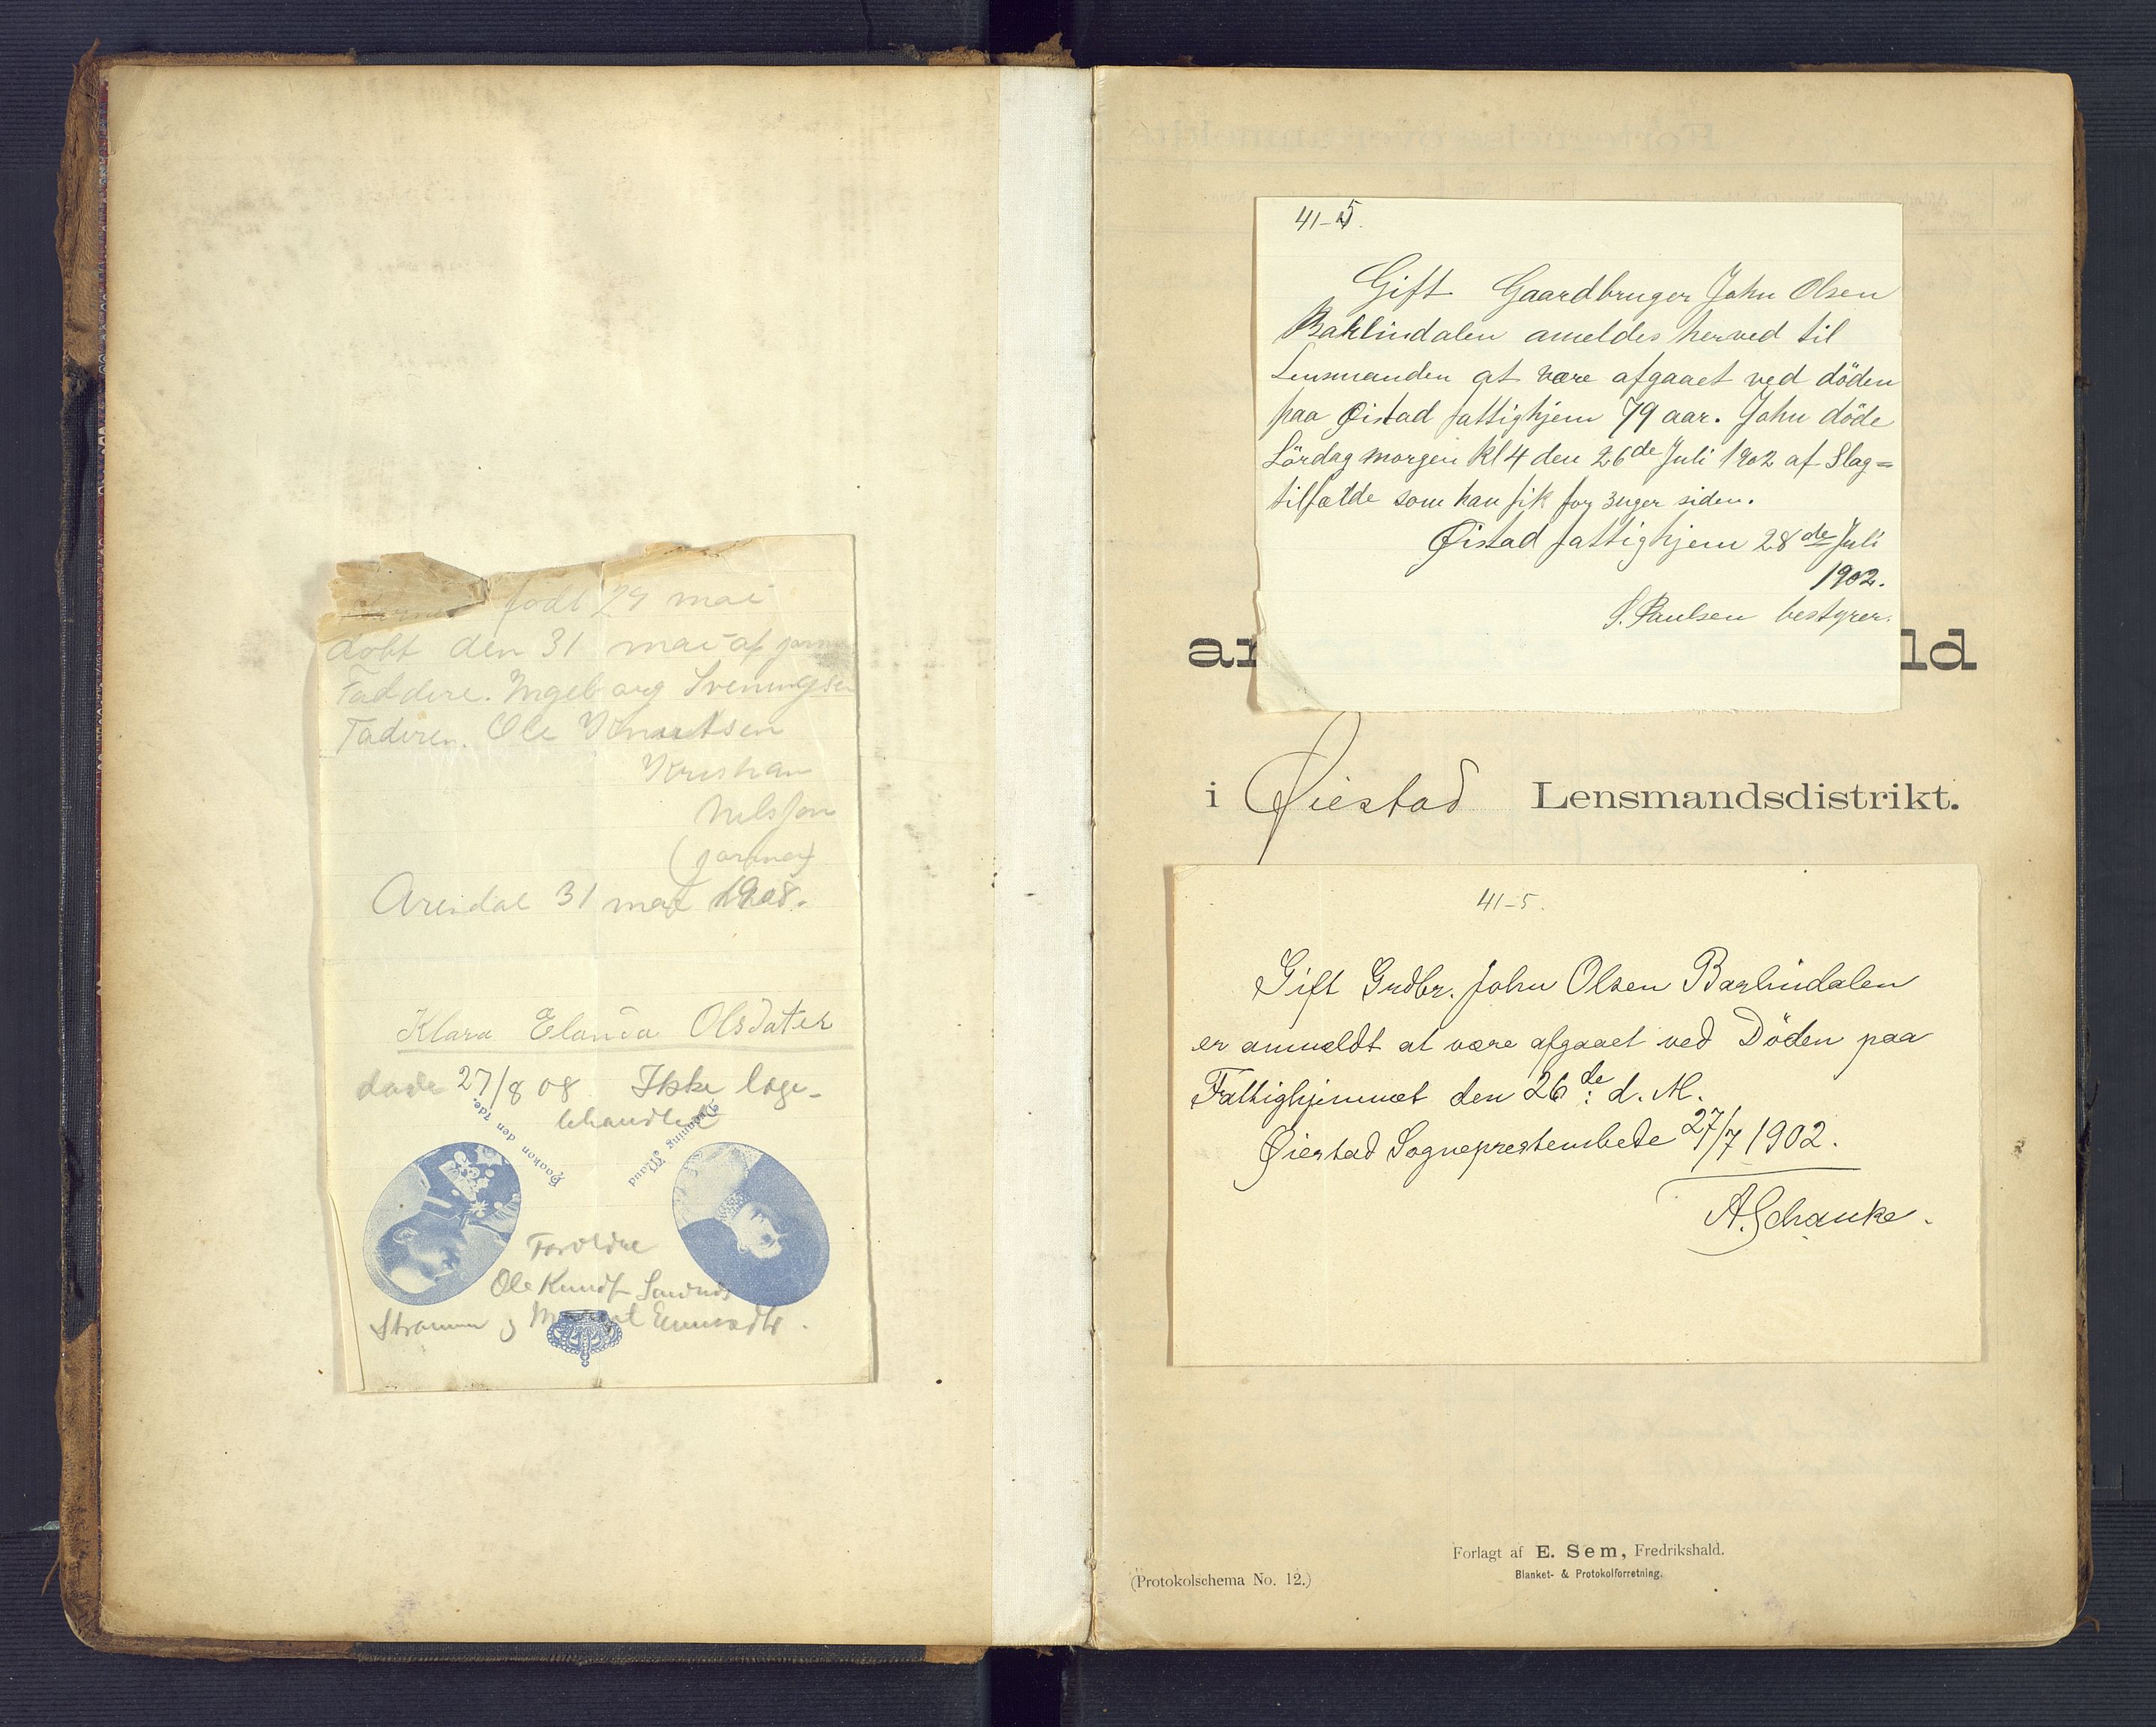 født 29 mai
døbt den 31 mai af
Faddere. Ingeborg Sveningsen
Faderen. Ole Knutsen
Kristian
Nilssen
Arendal 31 mai 1908.
Klara Elanda Olsdater
døde 27/8 08 Ikke læge-
behandlet
Haakon den 7de.
Dronning Maud
Forældre
Ole Knudsen
Strømm og
41-5.
Gift Gaardbruger John Olsen
Barlindalen ameldes herved til
Lensmanden at være afgaaet ved döden
paa Øistad fattighjem 79 aar. John döde
Lördag morgen kl 4 den 26de Juli 1902 af Slag=
tilfælde som han fik for 3 uger siden.
Øistad fattighjem 28de Juli
1902.
S. Paulsen bestyrer.
i Øiestad Lensmandsdistrikt.
41-5.
Gift Grdbr. John Olsen Barlindalen
er anmeldt at være afgaaet ved Döden paa
Fattighjemmet den 26de d. M.
Øiestad Sogneprestembede 27/7 1902.
A. Schanke.
Forlagt af E. Sem, Fredrikshald.
Blanket- & Protokolforretning.
(Protokolschema No. 12.)